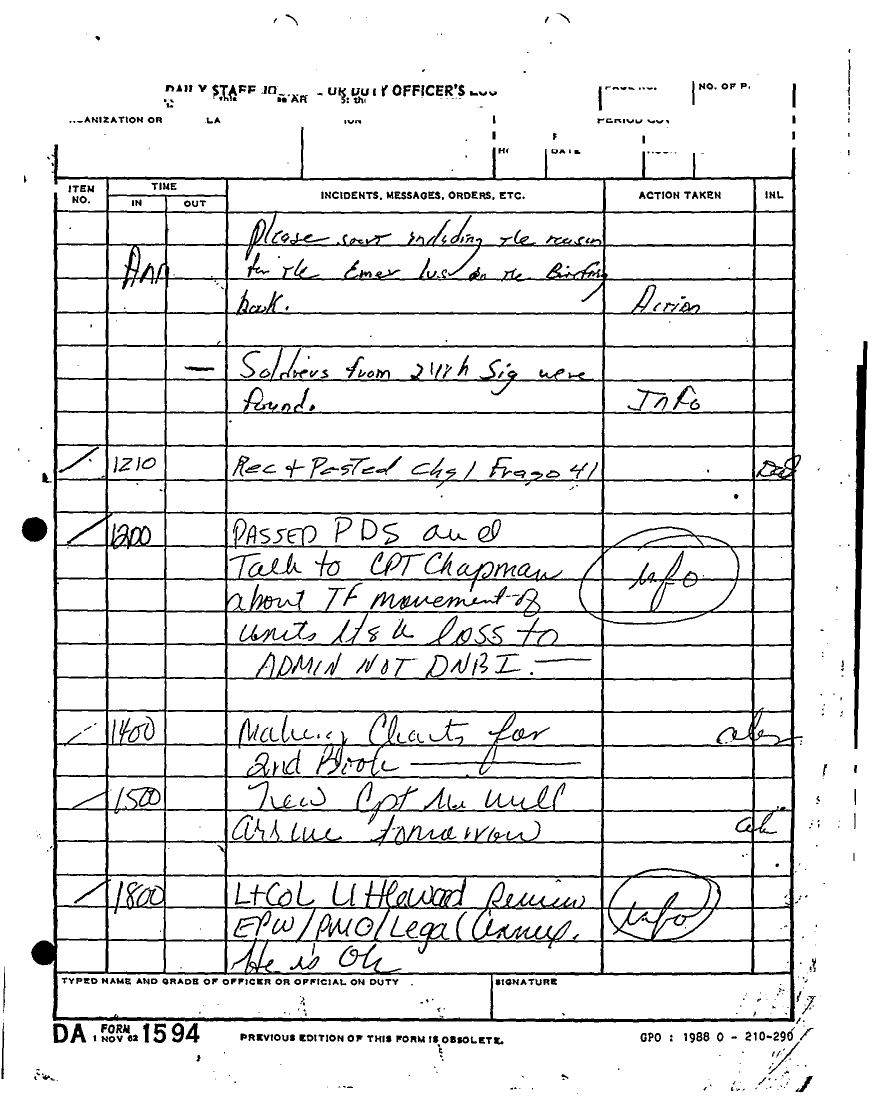 DAILY STAFF JO OR DUTY OFFICER'S LOG
NO. OF P.
ANIZATION OR LA ION PERIOD COV
DATE
ITEM NO. TIME IN OUT INCIDENTS, MESSAGES, ORDERS, ETC. ACTION TAKEN INL
Please including the reason
Ann for the Emer on the Briefing
book. Action
— Soldiers from Sig were
found. Info
/ 1210 Rec + Posted Chg 1 Frago 41
/ 1200 PASSED PDS and
Talk to CPT Chapman info
about TF movement of
units loss to
ADMIN NOT DNBI. —
/ 1400 Making Charts for
2nd Book —
/ 1500 New Cpt will
arrive tomorrow
/ 1800 Lt Col Howard Review
EPW/PMO/Legal Annex. info
He is Ok
TYPED NAME AND GRADE OF OFFICER OR OFFICIAL ON DUTY SIGNATURE
DA FORM 1 NOV 62 1594 PREVIOUS EDITION OF THIS FORM IS OBSOLETE. GPO : 1988 O - 210-290